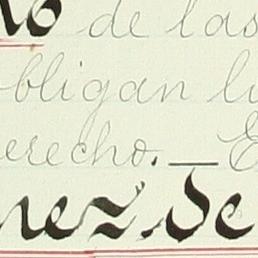 de las
bligan
erecho. — E
nez. Se